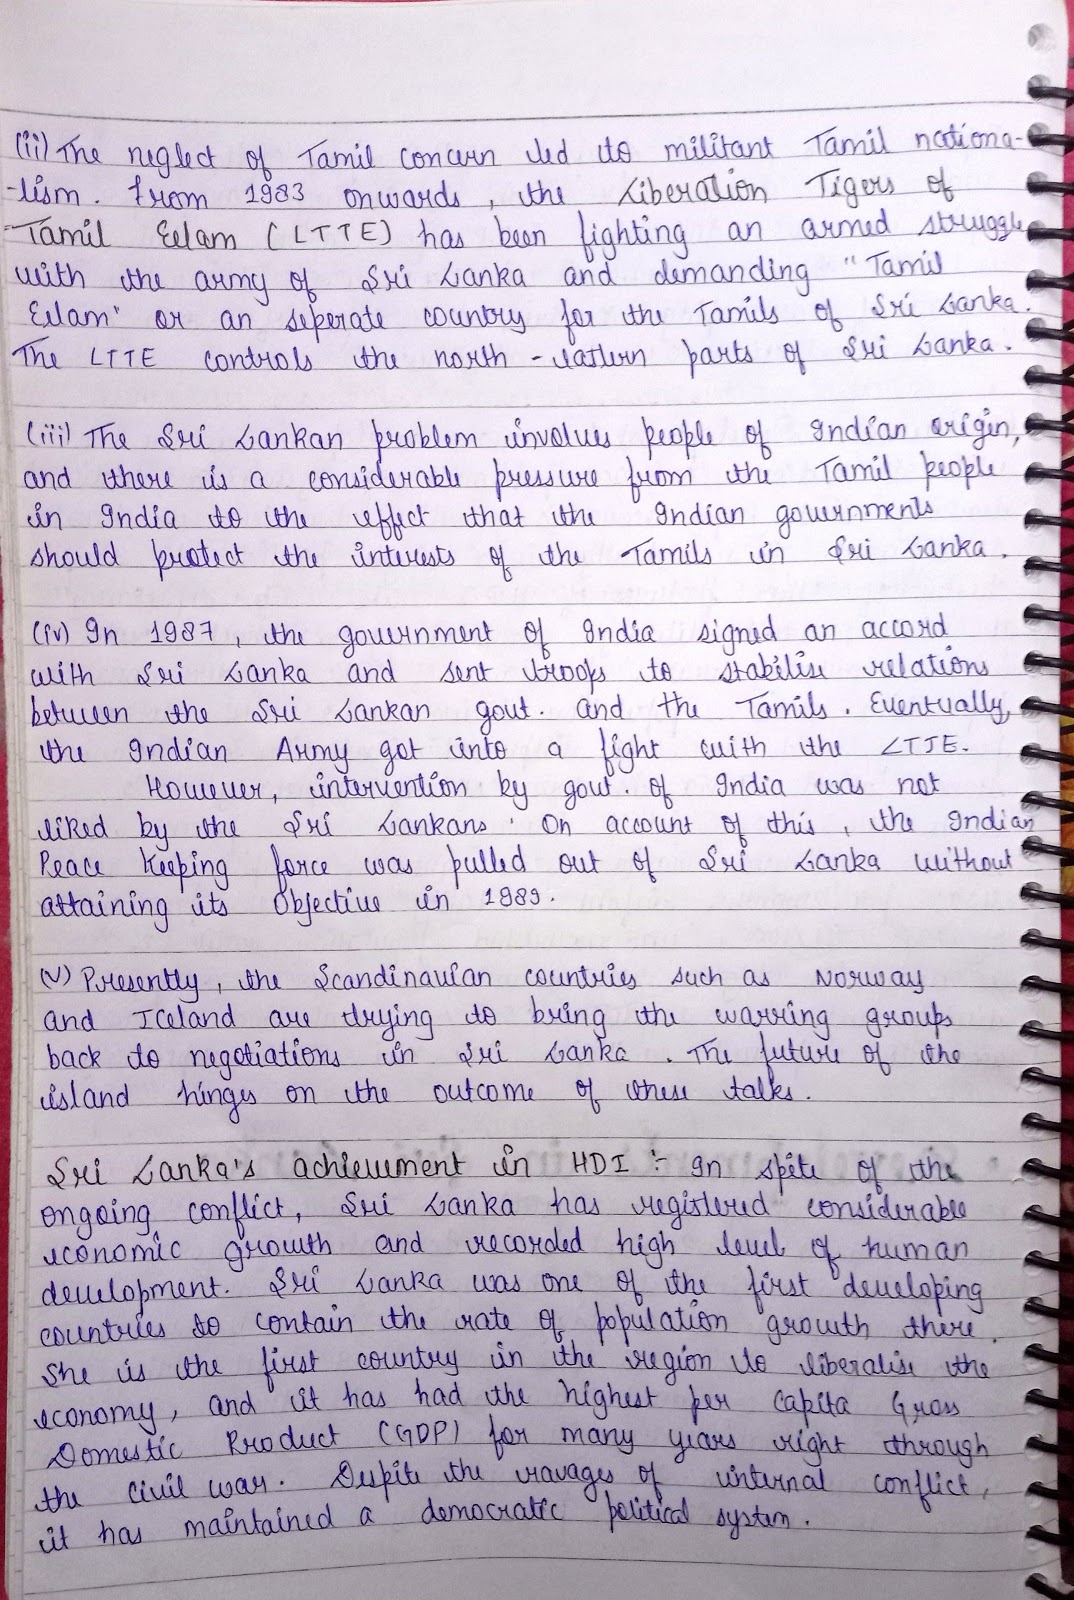 (ii) The neglect of Tamil concern led to militant Tamil nationa-
-lism. From 1983 onwards, the Liberation Tigers of
Tamil Eelam (LTTE) has been fighting an armed struggle
with the army of Sri Lanka and demanding "Tamil
Eelam" or an seperate country for the Tamils of Sri Lanka.
The LTTE controls the north-eastern parts of Sri Lanka.
(iii) The Sri Lankan problem involves people of Indian origin,
and there is a considerable pressure from the Tamil people
in India to the effect that the Indian governments
should protect the interests of the Tamils in Sri Lanka.
(iv) In 1987, the government of India signed an accord
with Sri Lanka and sent troops to stabilise relations
between the Sri Lankan govt. and the Tamils. Eventually,
the Indian Army got into a fight with the LTTE.
However, intervention by govt. of India was not
liked by the Sri Lankans. On account of this, the Indian
Peace Keeping force was pulled out of Sri Lanka without
attaining its objective in 1989.
(v) Presently, the Scandinavian countries such as Norway
and Iceland are trying to bring the warring groups
back to negotiations in Sri Lanka. The future of the
island hinges on the outcome of these talks.
Sri Lanka's achievement in HDI :- In spite of the
ongoing conflict, Sri Lanka has registered considerable
economic growth and recorded high level of human
development. Sri Lanka was one of the first developing
countries to contain the rate of population growth there.
She is the first country in the region to liberalise the
economy, and it has had the highest per capita Gross
Domestic Product (GDP) for many years right through
the civil war. Despite the ravages of internal conflict,
it has maintained a democratic political system.